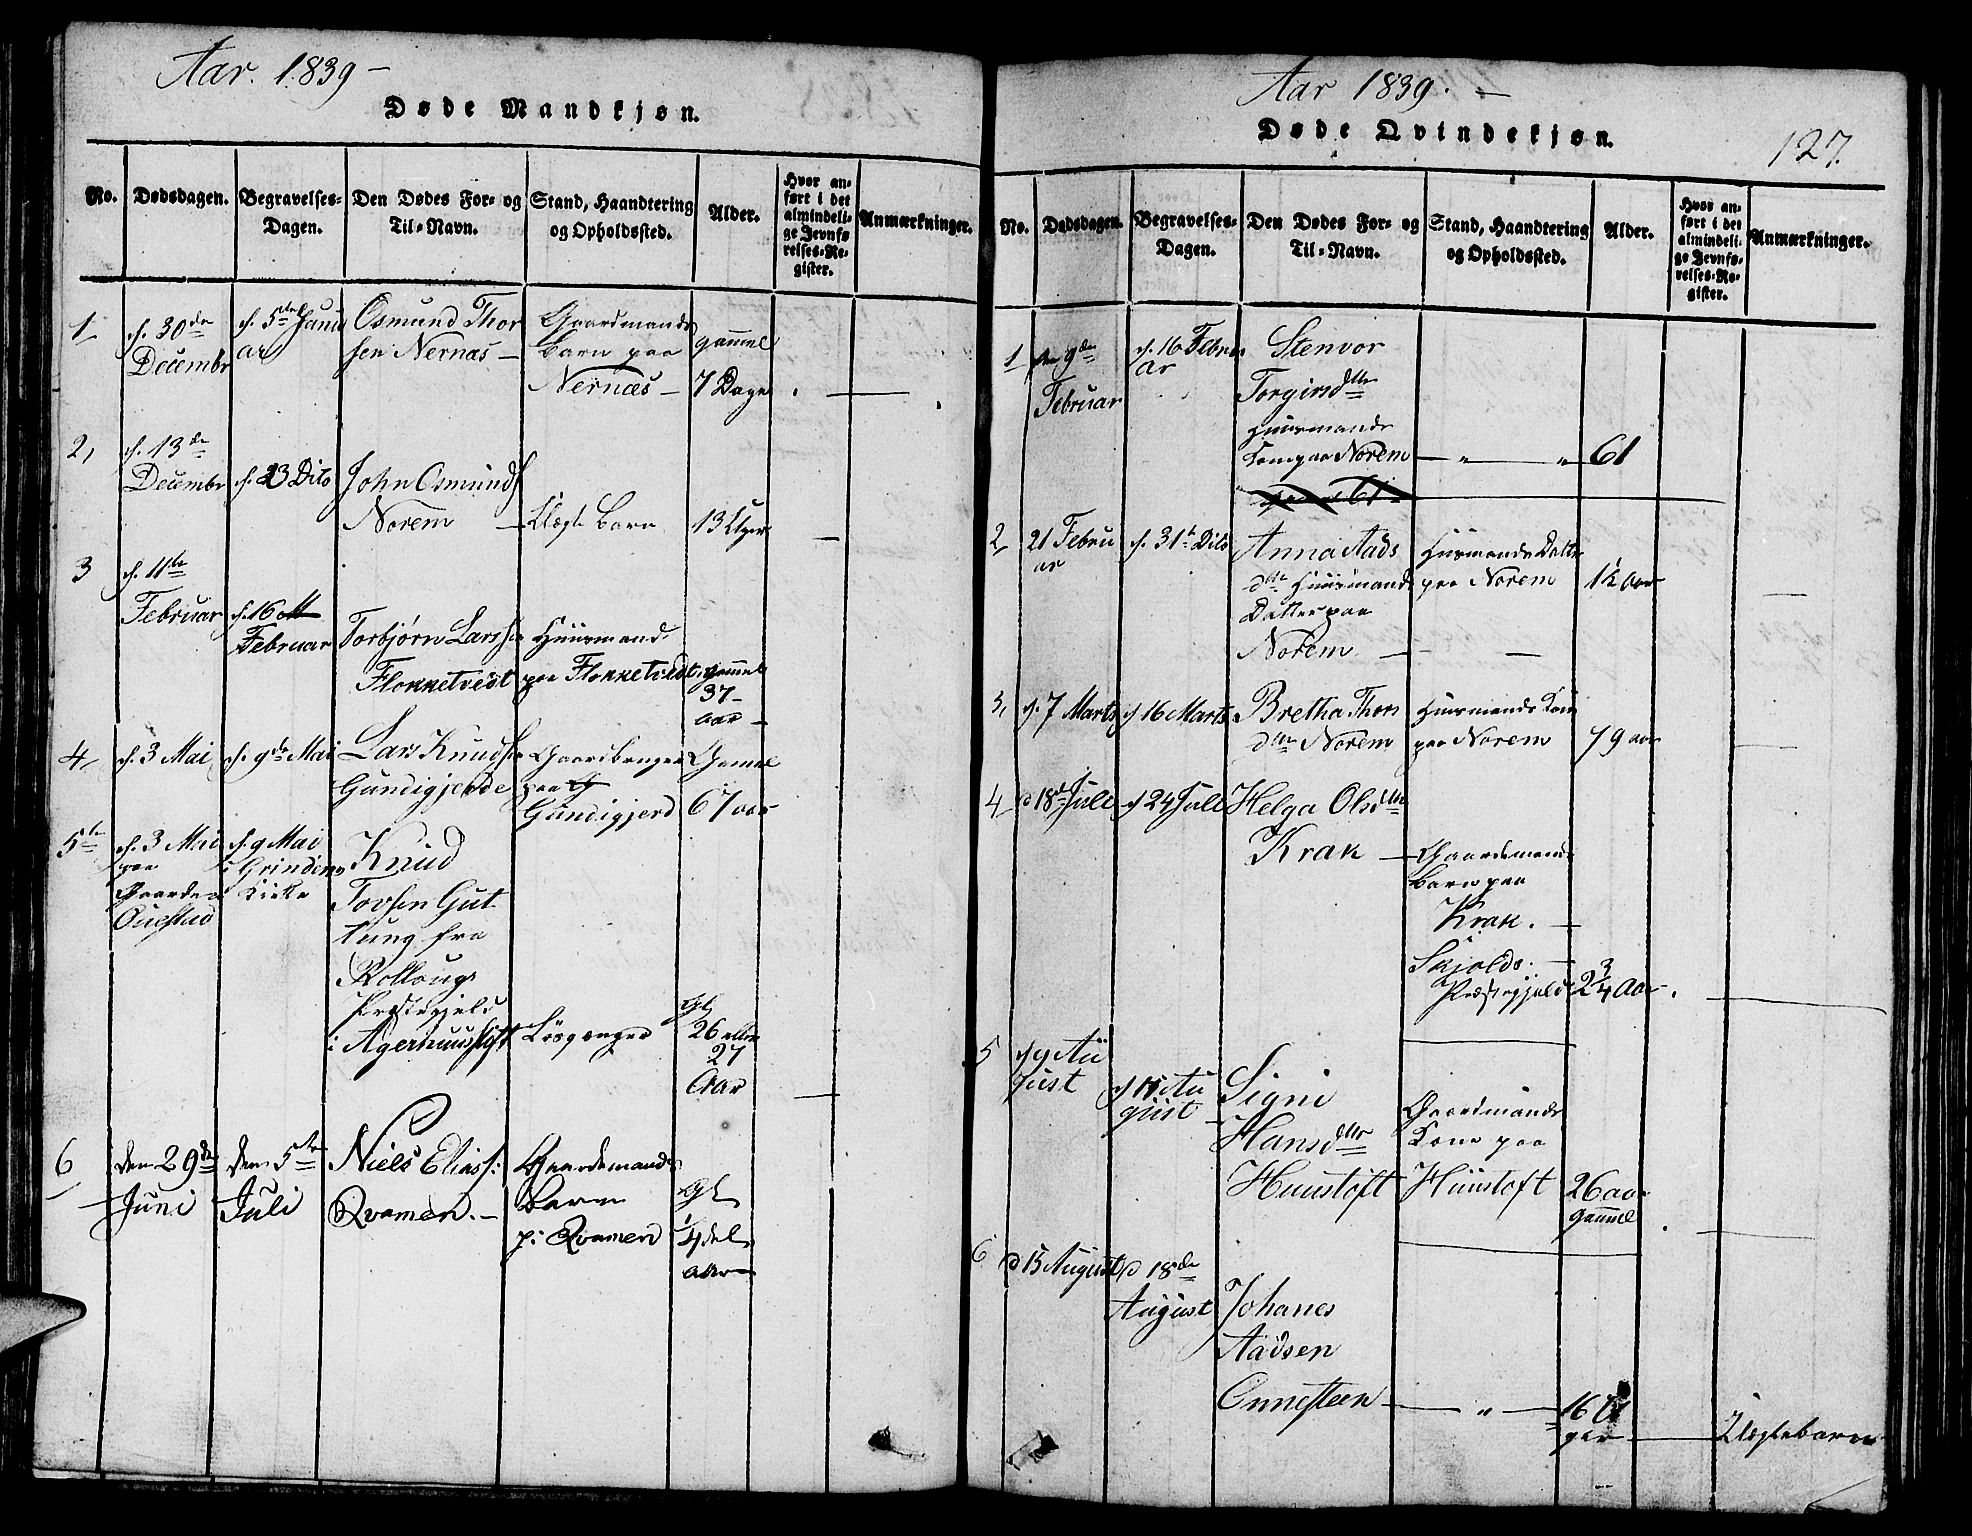 Aar. 1839 –
Døde Mandkjøn.
No.
Dødsdagen.
Begravelses-
Dagen.
Den Dødes For- og
Til-Navn.
Stand, Haandtering
og Opholdssted.
Alder.
Hvor an-
ført i det
almindeli-
ge Jevnfø-
relses-Re-
gister.
Anmærkninger.
1
d. 30de
Decembr
d. 5te Janu
ar
Osmund Thor
sen Nernæs –
Gaardmands
barn paa
Nernæs –
gammel
7 Dage
2,
d. 13de
Decembr
d. 23 Dito
John Osmunds
Norem –
Uægte Barn
13 Uger
3
d. 11te
Februar
d. 16
Februar
Torbjørn Larss
Flokketvedt
Huusmand
paa Flokketvedt
gammel
37 –
aar –
4,
d. 3 Mai
d. 9de Mai
Lars Knuds
Gundigjerde
Gaardbruger
paa
Gundigjerd
Gamel
67 aar
5te
d. 3 Mai
paa
Gaarden
d. 9 Mai
i Grindem
Kirke
Knud
Tovsen Gut
tung fra
Rollougs
Præstegjeld
i Agerhuusstift
Løsgænger
Gl
26 eller
27
Aar
6
den 29de
Juni
den 5te
Juli
Niels Eliass:
Qvamen. –
Gaardemands
Barn
p: Qvamen
Gl
1/4 del
aar
Aar 1839. –
Døde Qvindekjøn.
127.
No.
Dødsdagen.
Begravelses-
Dagen.
Den Dødes For- og
Til-Navn.
Stand, Haandtering
og Opholdssted.
Alder.
Hvor an-
ført i det
almindeli-
ge Jevnfø-
relses-Re-
gister.
Anmærkninger.
1
den 9de
Februar
d. 16 Febru
ar
Stenvor
Torgirsdtr
Huusmands
Kone paa Norem
– " – "
61
2,
21 Febru
ar
d. 31te Dito
Anna Aads
dtr Huusmands
Datter paa
Norem –
Huusmands Datter
paa Norem
1½ aar
3,
d. 7 Marts
d 16 Marts
Bretha Thors
dtr Norem
Huusmands Kone
paa Norem
79 aar
4,
d 18de Juli
d 24 Juli
Helga Olsdtr
Krak –
Gaardemands
Barn paa
Krak. –
Skjolds. –
Præstegjeld
2 3/4 Aar
5
d 9 Au
gust
d 15 Au
gust –
Signi
Hansdtr
Huustoft
Gaardmands
Kone paa
Huustoft
26 aar
gammel
6
d 15 August
d 18de
August
Johanes
Aadsen
Onnesteen
– " –
16 U
ger
Uægtebarn